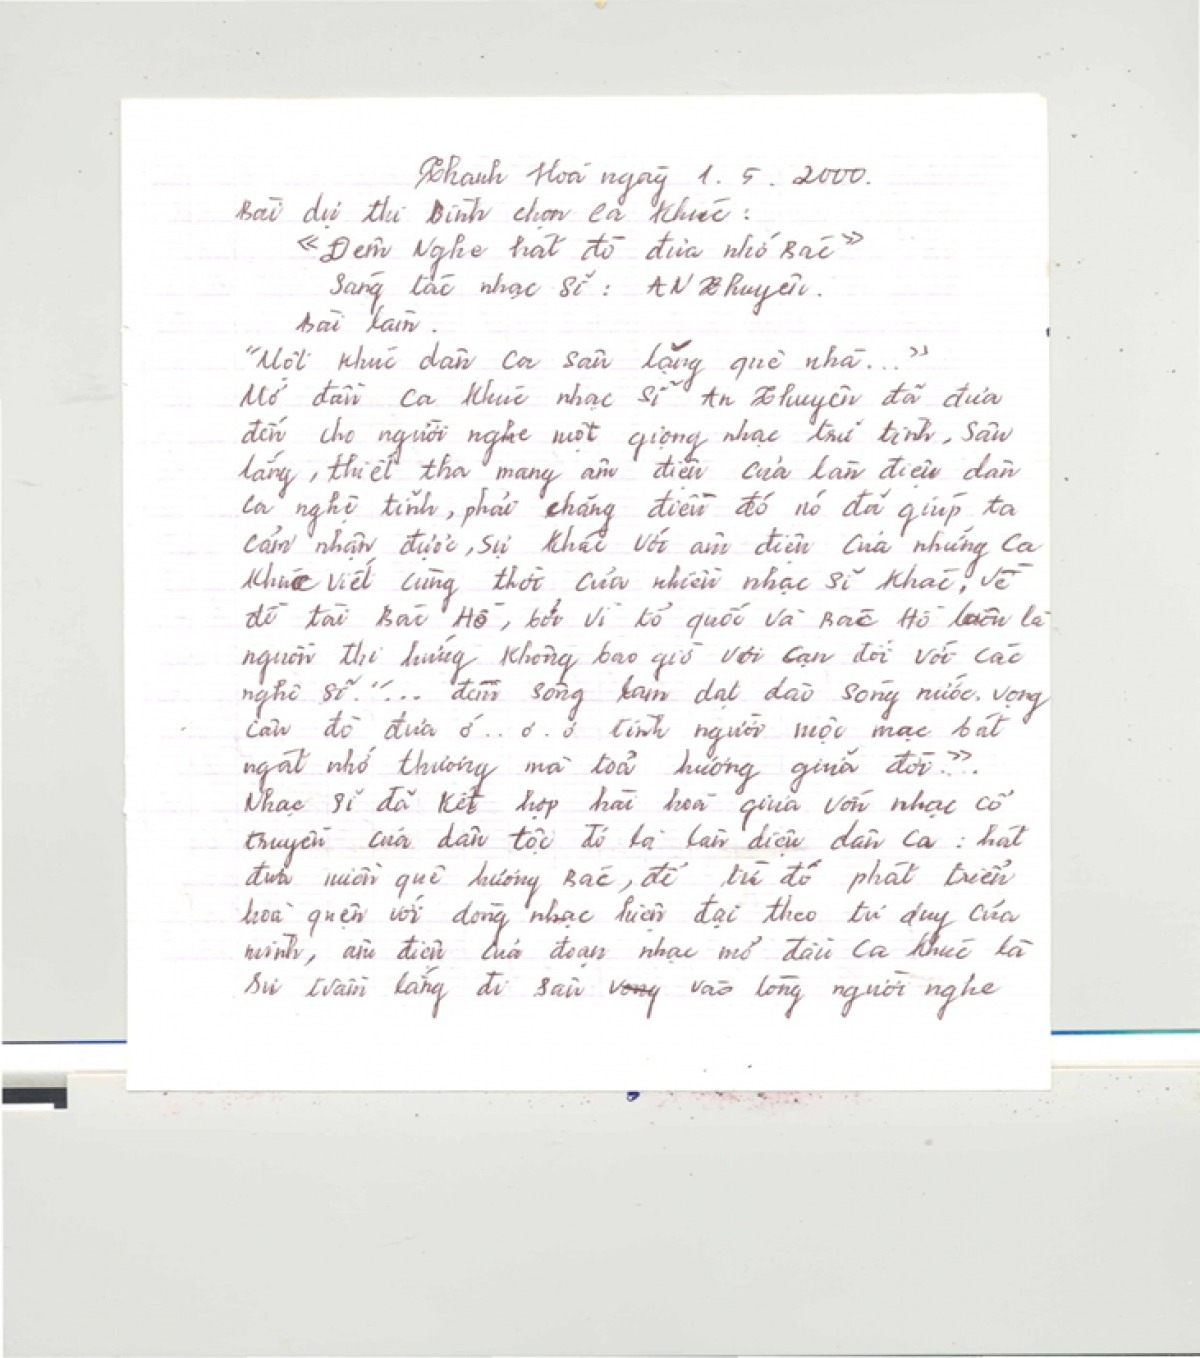 Thanh Hoá ngày 1.5.2000.
Bài dự thi Bình chọn ca khúc:
«Đêm Nghe hát đò đưa nhớ Bác»
Sáng tác nhạc sĩ: AN Thuyên.
Bài làm.
"Một khúc dân ca sâu lắng quê nhà..."
Mở đầu ca khúc nhạc sĩ An Thuyên đã đưa
đến cho người nghe một giọng nhạc trữ tình, sâu
lắng, thiết tha mang âm điệu của làn điệu dân
ca nghệ tĩnh, phải chăng điều đó nó đã giúp ta
cảm nhận được, sự khác với âm điệu của những ca
khúc viết cùng thời của nhiều nhạc sĩ khác, về
đề tài Bác Hồ, bởi vì tổ quốc và Bác Hồ luôn là
nguồn thi hứng không bao giờ vơi cạn đối với các
nghệ sĩ. "... đêm sông lam dạt dào sóng nước. vọng
câu đò đưa ớ.. ơ. ơ tình người mộc mạc bát
ngát nhớ thương mà toả hương giữa đời...".
Nhạc sĩ đã kết hợp hài hoà giữa vốn nhạc cổ
truyền của dân tộc đó là làn điệu dân ca: hát
đưa miền quê hương Bác, để từ đó phát triển
hoà quện với dòng nhạc hiện đại theo tư duy của
mình, âm điệu của đoạn nhạc mở đầu ca khúc là
sự trầm lắng đi sâu vào lòng người nghe